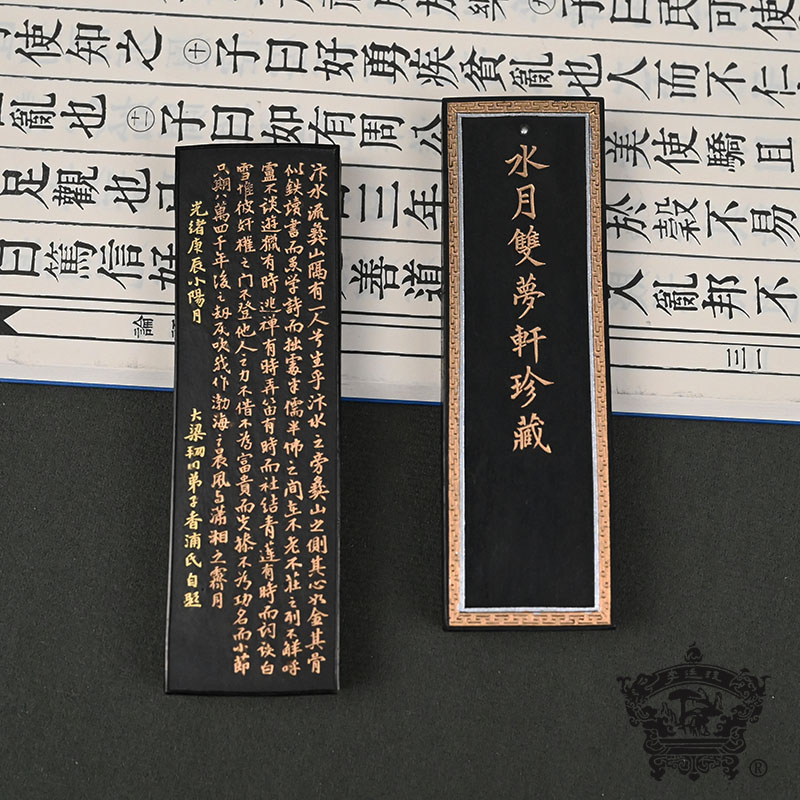 水月雙夢軒珍藏
汴水流彝山隅有一人兮生乎汴水之旁彝山之側其心如金其骨
似鉄讀書而魚學詩而拙處半儒半佛之間立不老不莊之列不解呼
盧不談遊獵有時逃禪有時弄笛有時而社結青蓮有時而詞白
雪堆彼奸權之門不登他人之力不借不為富貴而失操不為功名而小節
只期八萬四千年後之劫灰吹我作渤海之晨風与瀟湘之霽月
光緒庚辰小陽月
大梁弟子香浦氏自題
子曰民可使
使知之 ㊉ 子曰好勇疾貧亂也人而不仁
亂也 十一 子曰如有周公 美使驕且
足觀也已 三年 於穀不易
曰篤信好 善道 人亂邦不
論
三一